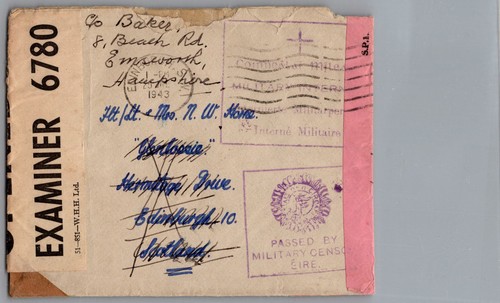 c/o Baker,
8, Beach Rd.
Emsworth,
Hampshire
1943
Flt/Lt. & Mrs. N. W. Hone.
"Glenlossie"
Hermitage Drive.
Edinburgh 10.
Scotland.
EXAMINER 6780
51-851-W.H.H. Ltd.
S.P.1.
MILITARY INTERN
Interné Militaire
PASSED BY
MILITARY CENSO
EIRE.